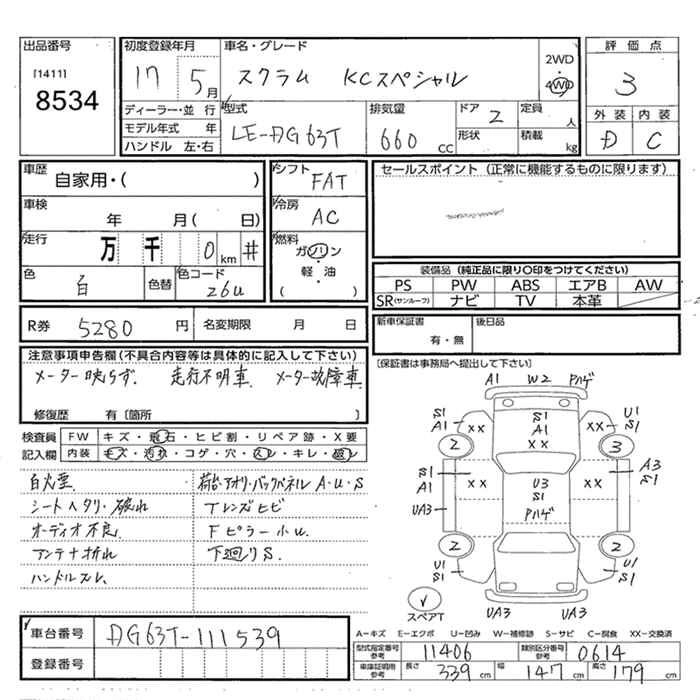 出品番号
[1411]
8534
初度登録年月
17 5月
車名・グレード
スクラム KCスペシャル
2WD
4WD
評価点
3
外装 内装
D C
ディーラー・並行
モデル年式 年
ハンドル 左・右
型式
LE-DG63T
排気量
660 CC
ドア 2
形状
定員 人
積載 kg
車歴
自家用・( )
車検
年 月( 日)
走行
万 千 0 km #
色
白
色替
色コード
26U
シフト
FAT
冷房
AC
燃料
ガソリン
・
軽・油
( )
セールスポイント (正常に機能するものに限ります)
装備品 (純正品に限り○印をつけてください)
PS PW ABS エアB AW
SR(サンルーフ) ナビ TV 本革
R券 5280 円 名変期限 月 日
新車保証書
有・無
後日品
注意事項申告欄(不具合内容等は具体的に記入して下さい)
メーター映らず. 走行不明車. メーター故障車
修復歴 有〔箇所 〕
[保証書は事務局へ提出して下さい]
検査員
記入欄
FW キズ・飛石・ヒビ割・リペア跡・X要
内装 キズ・汚れ・コゲ・穴・スレ・キレ・破レ
シートヘタリ・破れ
オーディオ不良
アンテナ折れ
ハンドルスレ.
荷台・アオリ・バックパネル A・U・S
Tレンズヒビ
Fピラー小U.
下廻りS.
A1 W2 Pハゲ
S1
A1
XX
2
S1
A1
XX
XX
U1
S1
3
S1
A1
UA3
XX
U3
S1
Pハゲ
XX
A3
S1
2
U1
S1
2
U1
S1
スペアT
UA3 UA3
車台番号 DG63T-111539
登録番号
A-キズ E-エクボ U-凹み W-補修跡 S-サビ C-腐食 XX-交換済
型式指定番号
参考
11406
類別区分番号
参考
0614
車庫証明用
参考
長さ 339 cm 幅 147 cm 高さ 179 cm